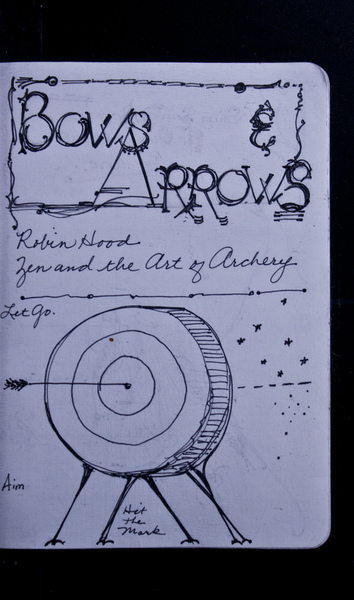 Bows &
Arrows
Robin Hood
Zen and the Art of Archery
Let Go.
Aim
Hit
the
Mark